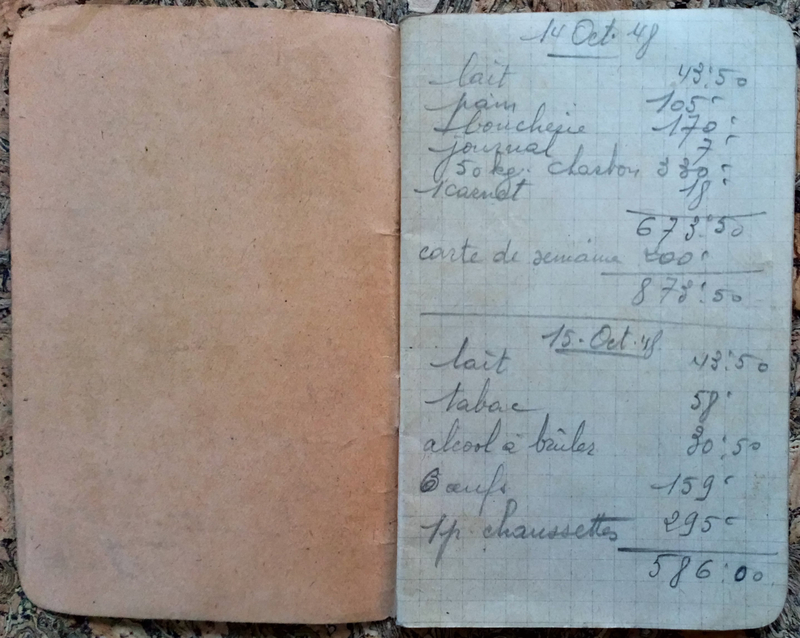 14 Oct. 48
lait 43:50
pain 105-
boucherie 170-
journal 7-
50 kg. charbon 330-
1 carnet 18-
673:50
carte de semaine 200-
873:50
15. Oct. 48
lait 43:50
tabac 58-
alcool à brûler 30:50
6 œufs 159-
1 p. chaussettes 295-
586:00